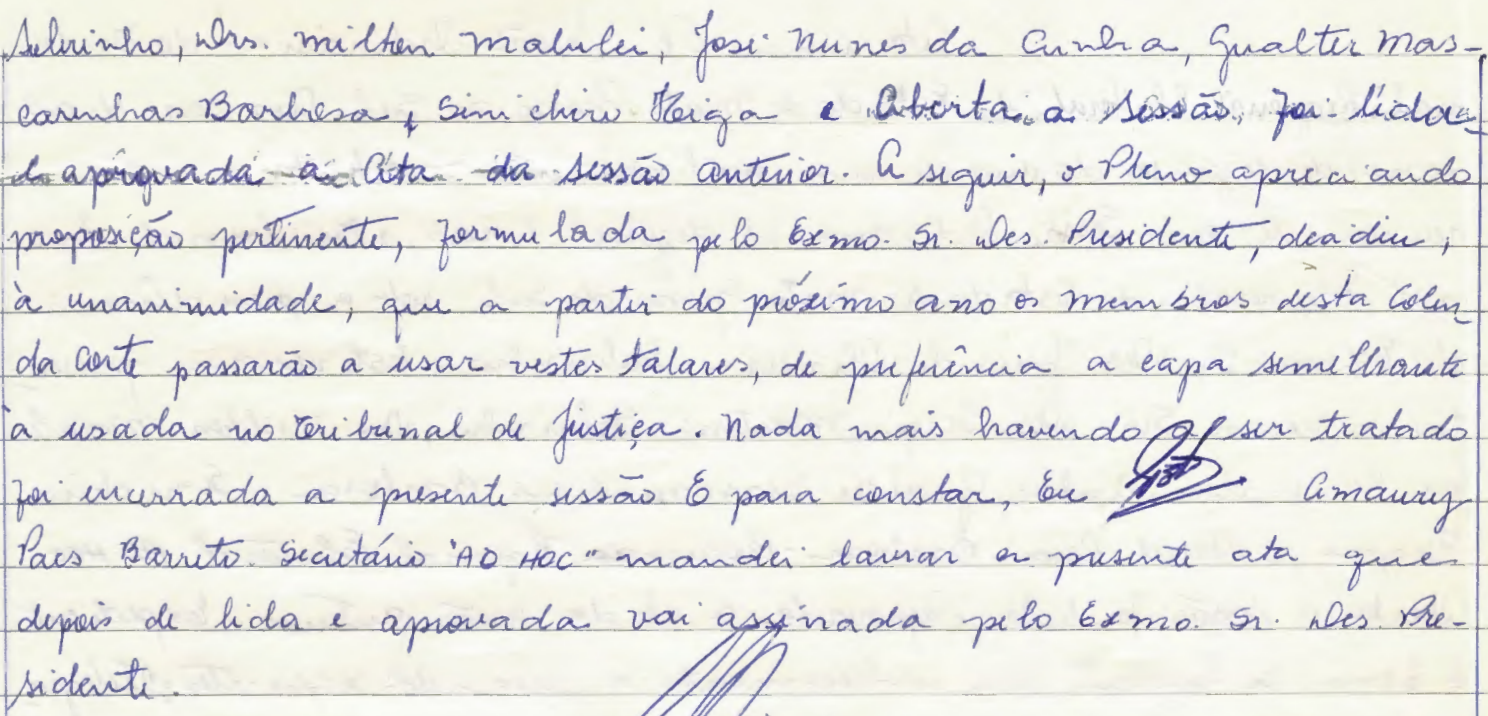 Sobrinho, Drs. Milton Malulei, José Nunes da Cunha, Gualter Mas-
carenhas Barbosa, Sinichiro Heiga e Aberta a Sessão, foi lida
e aprovada a Ata da sessão anterior. A seguir, o Pleno apreciando
proposição pertinente, formulada pelo Exmo. Sr. Des. Presidente, decidiu,
à unanimidade, que a partir do próximo ano os membros desta Colen
da Corte passarão a usar vestes talares, de preferência a capa semelhante
à usada no Tribunal de Justiça. Nada mais havendo a ser tratado
foi encerrada a presente sessão E para constar, Eu Amaury
Paes Barreto. Secretário "AD HOC" mandei lavrar a presente ata que
depois de lida e aprovada vai assinada pelo Exmo. Sr. Des. Pre-
sidente.